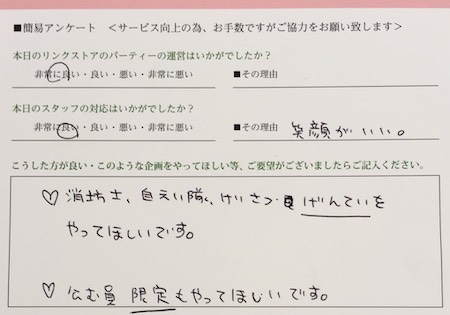 ■簡易アンケート　＜サービス向上の為、お手数ですがご協力をお願い致します＞
本日のリンクストアのパーティーの運営はいかがでしたか？
非常に良い・良い・悪い・非常に悪い　■その理由
本日のスタッフの対応はいかがでしたか？
非常に良い・良い・悪い・非常に悪い　■その理由　笑顔がいい。
こうした方が良い・このような企画をやってほしい等、ご要望がございましたらご記入ください。
♡ 消坊士、自えい隊、けいさつ げんていを
やってほしいです。
♡ 公む員 限定もやってほしいです。